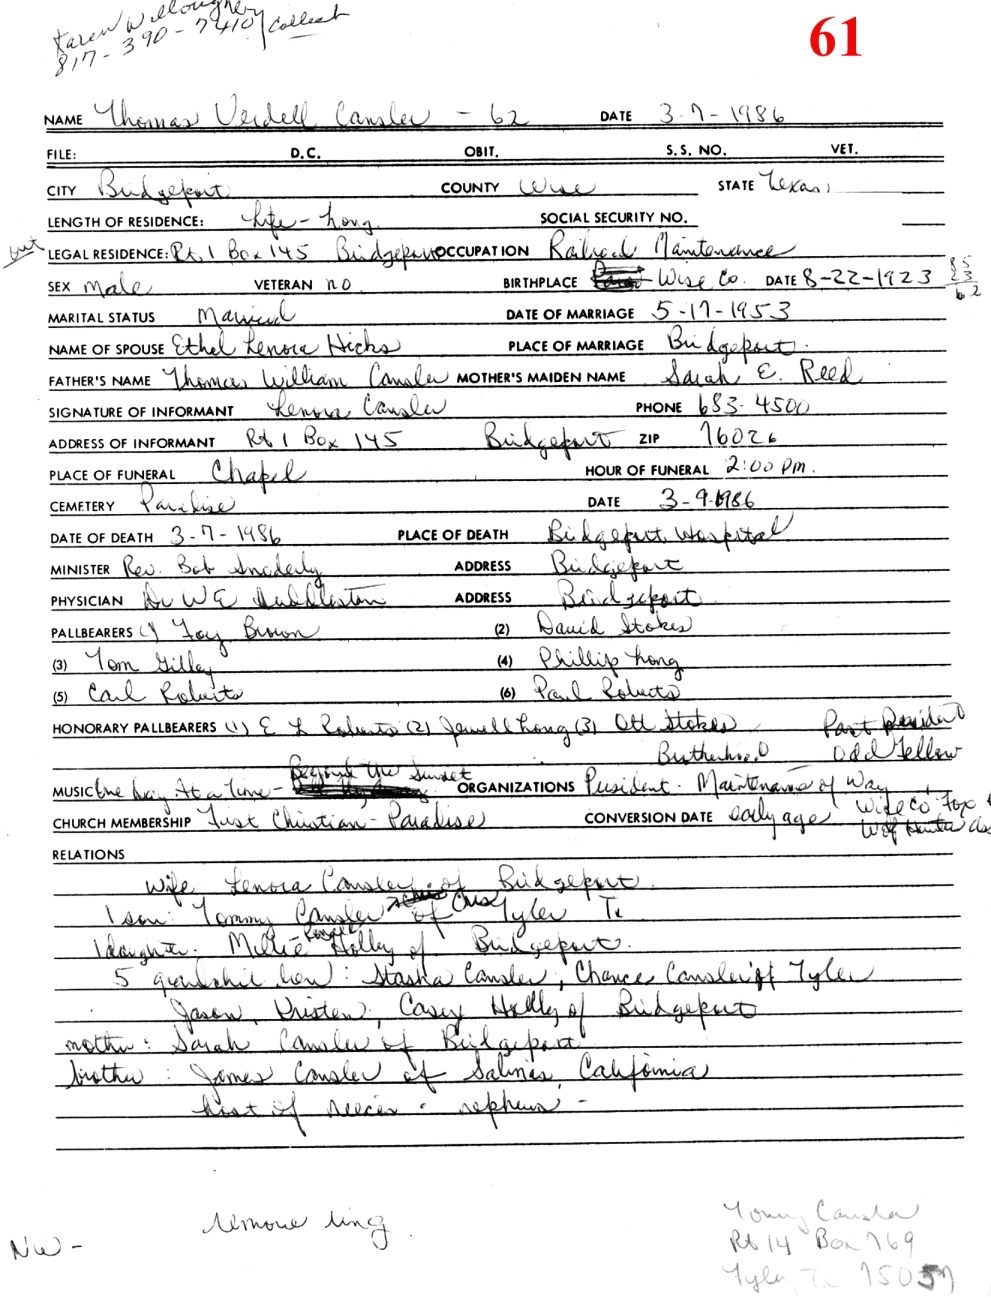 Karen Willoughby
817-390-7410/collect
61
NAME Thomas Verdell Cansler - 62 DATE 3-7-1986
FILE: D.C. OBIT. S.S. NO. VET.
CITY Bridgeport COUNTY Wise STATE Texas
LENGTH OF RESIDENCE: Life-Long SOCIAL SECURITY NO.
out LEGAL RESIDENCE: Rt 1 Box 145 Bridgeport OCCUPATION Railroad Maintenance
SEX Male VETERAN no BIRTHPLACE Wise Co. DATE 8-22-1923
85
23
62
MARITAL STATUS Married DATE OF MARRIAGE 5-17-1953
NAME OF SPOUSE Ethel Lenora Hicks PLACE OF MARRIAGE Bridgeport
FATHER'S NAME Thomas William Cansler MOTHER'S MAIDEN NAME Sarah E. Reed
SIGNATURE OF INFORMANT Lenora Cansler PHONE 683-4500
ADDRESS OF INFORMANT Rt 1 Box 145 Bridgeport ZIP 76026
PLACE OF FUNERAL Chapel HOUR OF FUNERAL 2:00 pm.
CEMETERY Paradise DATE 3-9-1986
DATE OF DEATH 3-7-1986 PLACE OF DEATH Bridgeport Hospital
MINISTER Rev. Bob Snoderly ADDRESS Bridgeport
PHYSICIAN Dr W E Huddleston ADDRESS Bridgeport
PALLBEARERS (1) Foy Brown (2) David Stokes
(3) Tom Gilley (4) Phillip Long
(5) Carl Roberts (6) Paul Roberts
HONORARY PALLBEARERS (1) E L Roberts (2) Jewell Long (3) Ott Stokes Past President
Brotherhood Odd Fellow
Beyond the Sunset
MUSIC One day at a time - ORGANIZATIONS President - Maintenance of Way
CHURCH MEMBERSHIP First Christian - Paradise CONVERSION DATE early age Wise Co Fox &
Wolf Hunter Ass
RELATIONS
wife Lenora Cansler of Bridgeport
1 son: Tommy Cansler of Tyler Tx
1 daughter: Millie Holley of Bridgeport.
5 grandchildren: Stasha Cansler, Chance Cansler of Tyler
Jason, Kristen, Casey Holley of Bridgeport
mother: Sarah Cansler of Bridgeport
brother: James Cansler of Salinas, California
host of neices & nephews -
remove ring
NW -
Tommy Cansler
Rt 14 Box 769
Tyler, Tx 75057